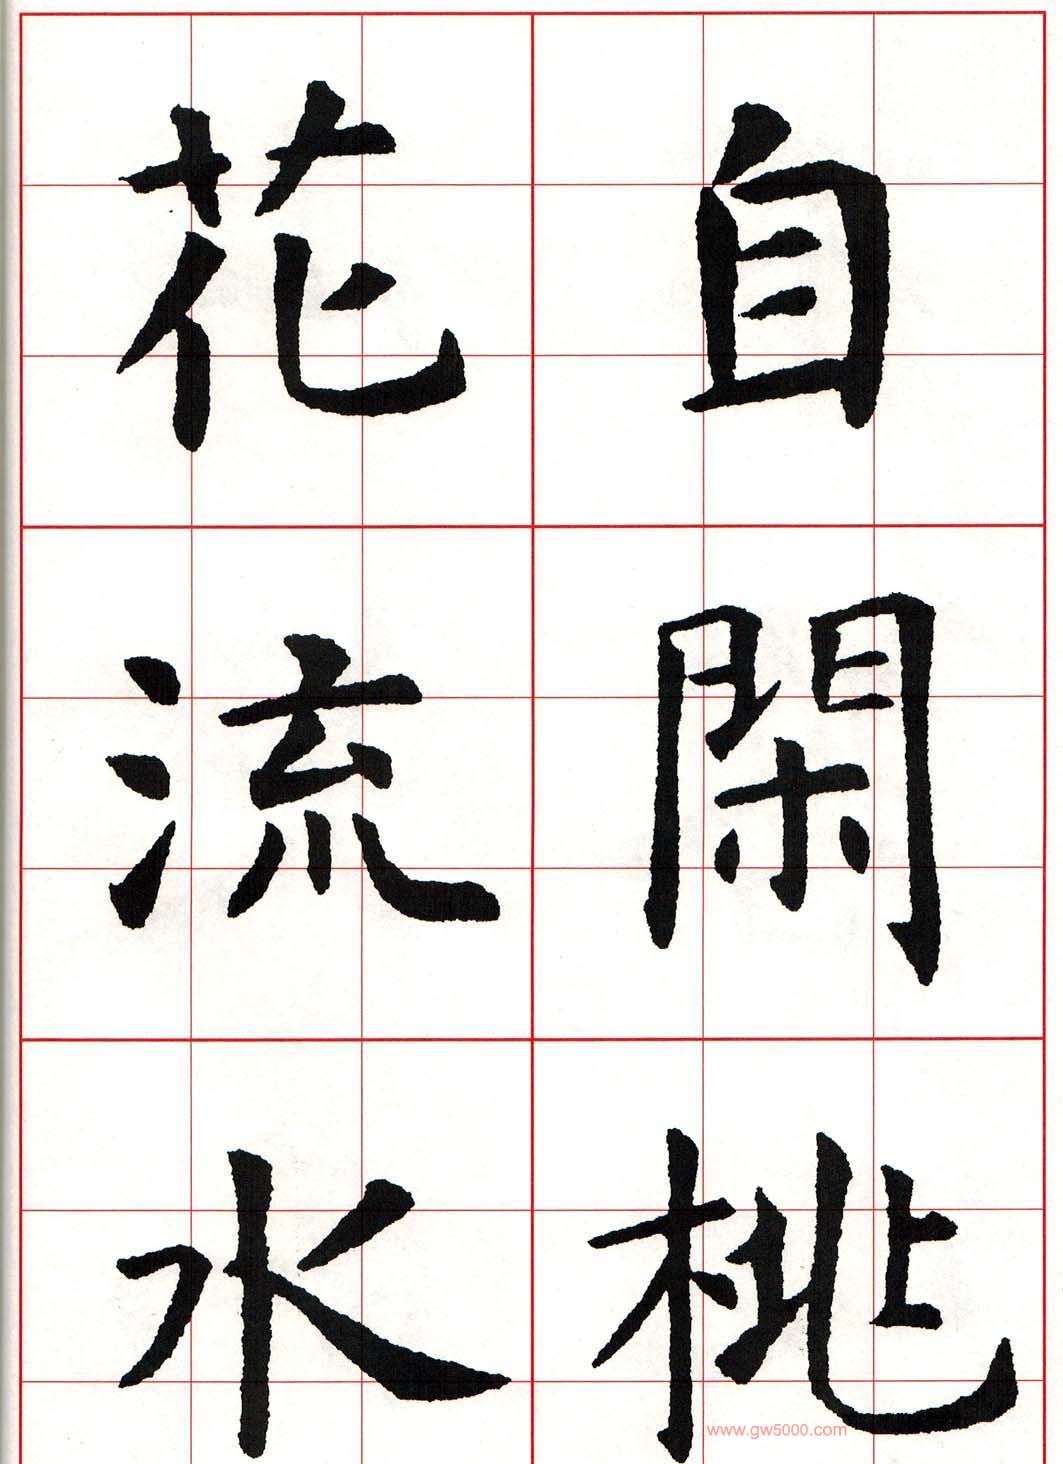 自閑桃
花流水
www.gw5000.com